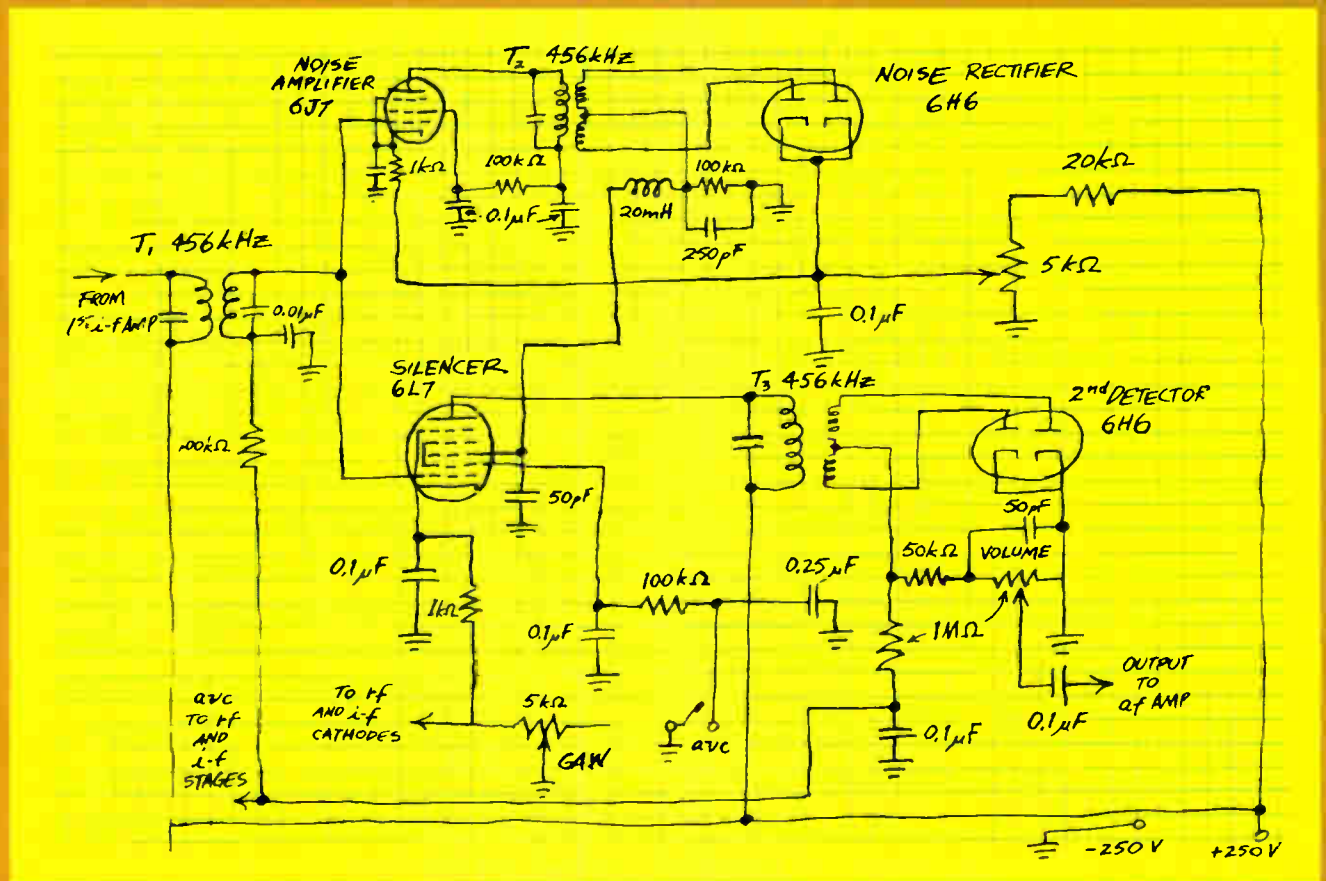 NOISE
AMPLIFIER
6J7
T2 456kHz
NOISE RECTIFIER
6H6
1kΩ
100kΩ
0.1μF
20mH
100kΩ
250pF
20kΩ
5kΩ
0.1μF
T1 456kHz
FROM
1st i-f AMP
0.01μF
SILENCER
6L7
T3 456kHz
2nd DETECTOR
6H6
50pF
50pF
50kΩ
VOLUME
0.1μF
1kΩ
100kΩ
0.25μF
0.1μF
1MΩ
OUTPUT
TO
af AMP
0.1μF
avc
TO rf
AND
i-f
STAGES
TO rf
AND i-f
CATHODES
5kΩ
avc
0.1μF
-250V
+250V